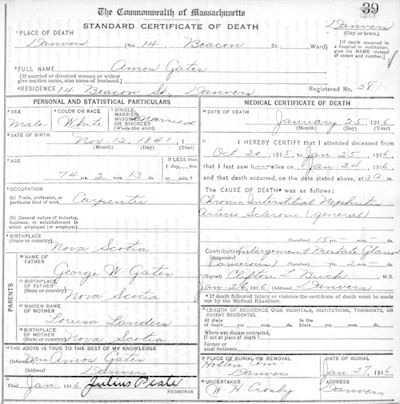 39
The Commonwealth of Massachusetts
STANDARD CERTIFICATE OF DEATH
Danvers
(City or town.)
PLACE OF DEATH
Danvers (No. 14 Beacon St. Ward)
[If death occurred in a hospital or institution, give its NAME instead of street and number.]
FULL NAME Amos Gates
[If married or divorced woman or widow give maiden name, also name of husband.]
RESIDENCE 14 Beacon St., Danvers Registered No. 28
PERSONAL AND STATISTICAL PARTICULARS
SEX Male
COLOR OR RACE White
SINGLE, MARRIED, WIDOWED OR DIVORCED (Write the word) Married
DATE OF BIRTH Nov. 12, 1841
(Month) (Day) (Year)
AGE
74 yrs. 2 mos. 13 ds.
If LESS than 1 day, hrs.
OCCUPATION
(a) Trade, profession, or particular kind of work Carpenter
(b) General nature of industry, business, or establishment in which employed (or employer)
BIRTHPLACE (State or country) Nova Scotia
PARENTS
NAME OF FATHER George W. Gates
BIRTHPLACE OF FATHER (State or country) Nova Scotia
MAIDEN NAME OF MOTHER Louisa Landers
BIRTHPLACE OF MOTHER (State or country) Nova Scotia
THE ABOVE IS TRUE TO THE BEST OF MY KNOWLEDGE
(Informant) Mrs Amos Gates
(Address) Danvers
Filed Jan 1916 Julius Peale
REGISTRAR
MEDICAL CERTIFICATE OF DEATH
DATE OF DEATH
January 25, 1916
(Month) (Day) (Year)
I HEREBY CERTIFY that I attended deceased from
Oct 20, 1915, to Jan 25, 1916
that I last saw him alive on Jan 24, 1916
and that death occurred, on the date stated above, at 2 a m.
The CAUSE OF DEATH was as follows:
Chronic Interstitial Nephritis
Arterio Sclerosis (General)
(Duration) 15 yrs. mos. ds.
Contributory Enlargement Prostate Gland
Cancerous
(Signed) Clifton L. Buck M.D.
Jan 26, 1916 (Address) Danvers
If death followed injury or violence the certificate of death must be made out by the Medical Examiner.
LENGTH OF RESIDENCE (FOR HOSPITALS, INSTITUTIONS, TRANSIENTS, OR RECENT RESIDENTS)
At place of death yrs. mos. ds. State yrs. mos. ds.
Where was disease contracted, if not at place of death?
Former or usual residence
PLACE OF BURIAL OR REMOVAL
Holten Cem. Danvers
DATE OF BURIAL
Jan 27, 1916
UNDERTAKER
W. H. Crosby
ADDRESS
Danvers